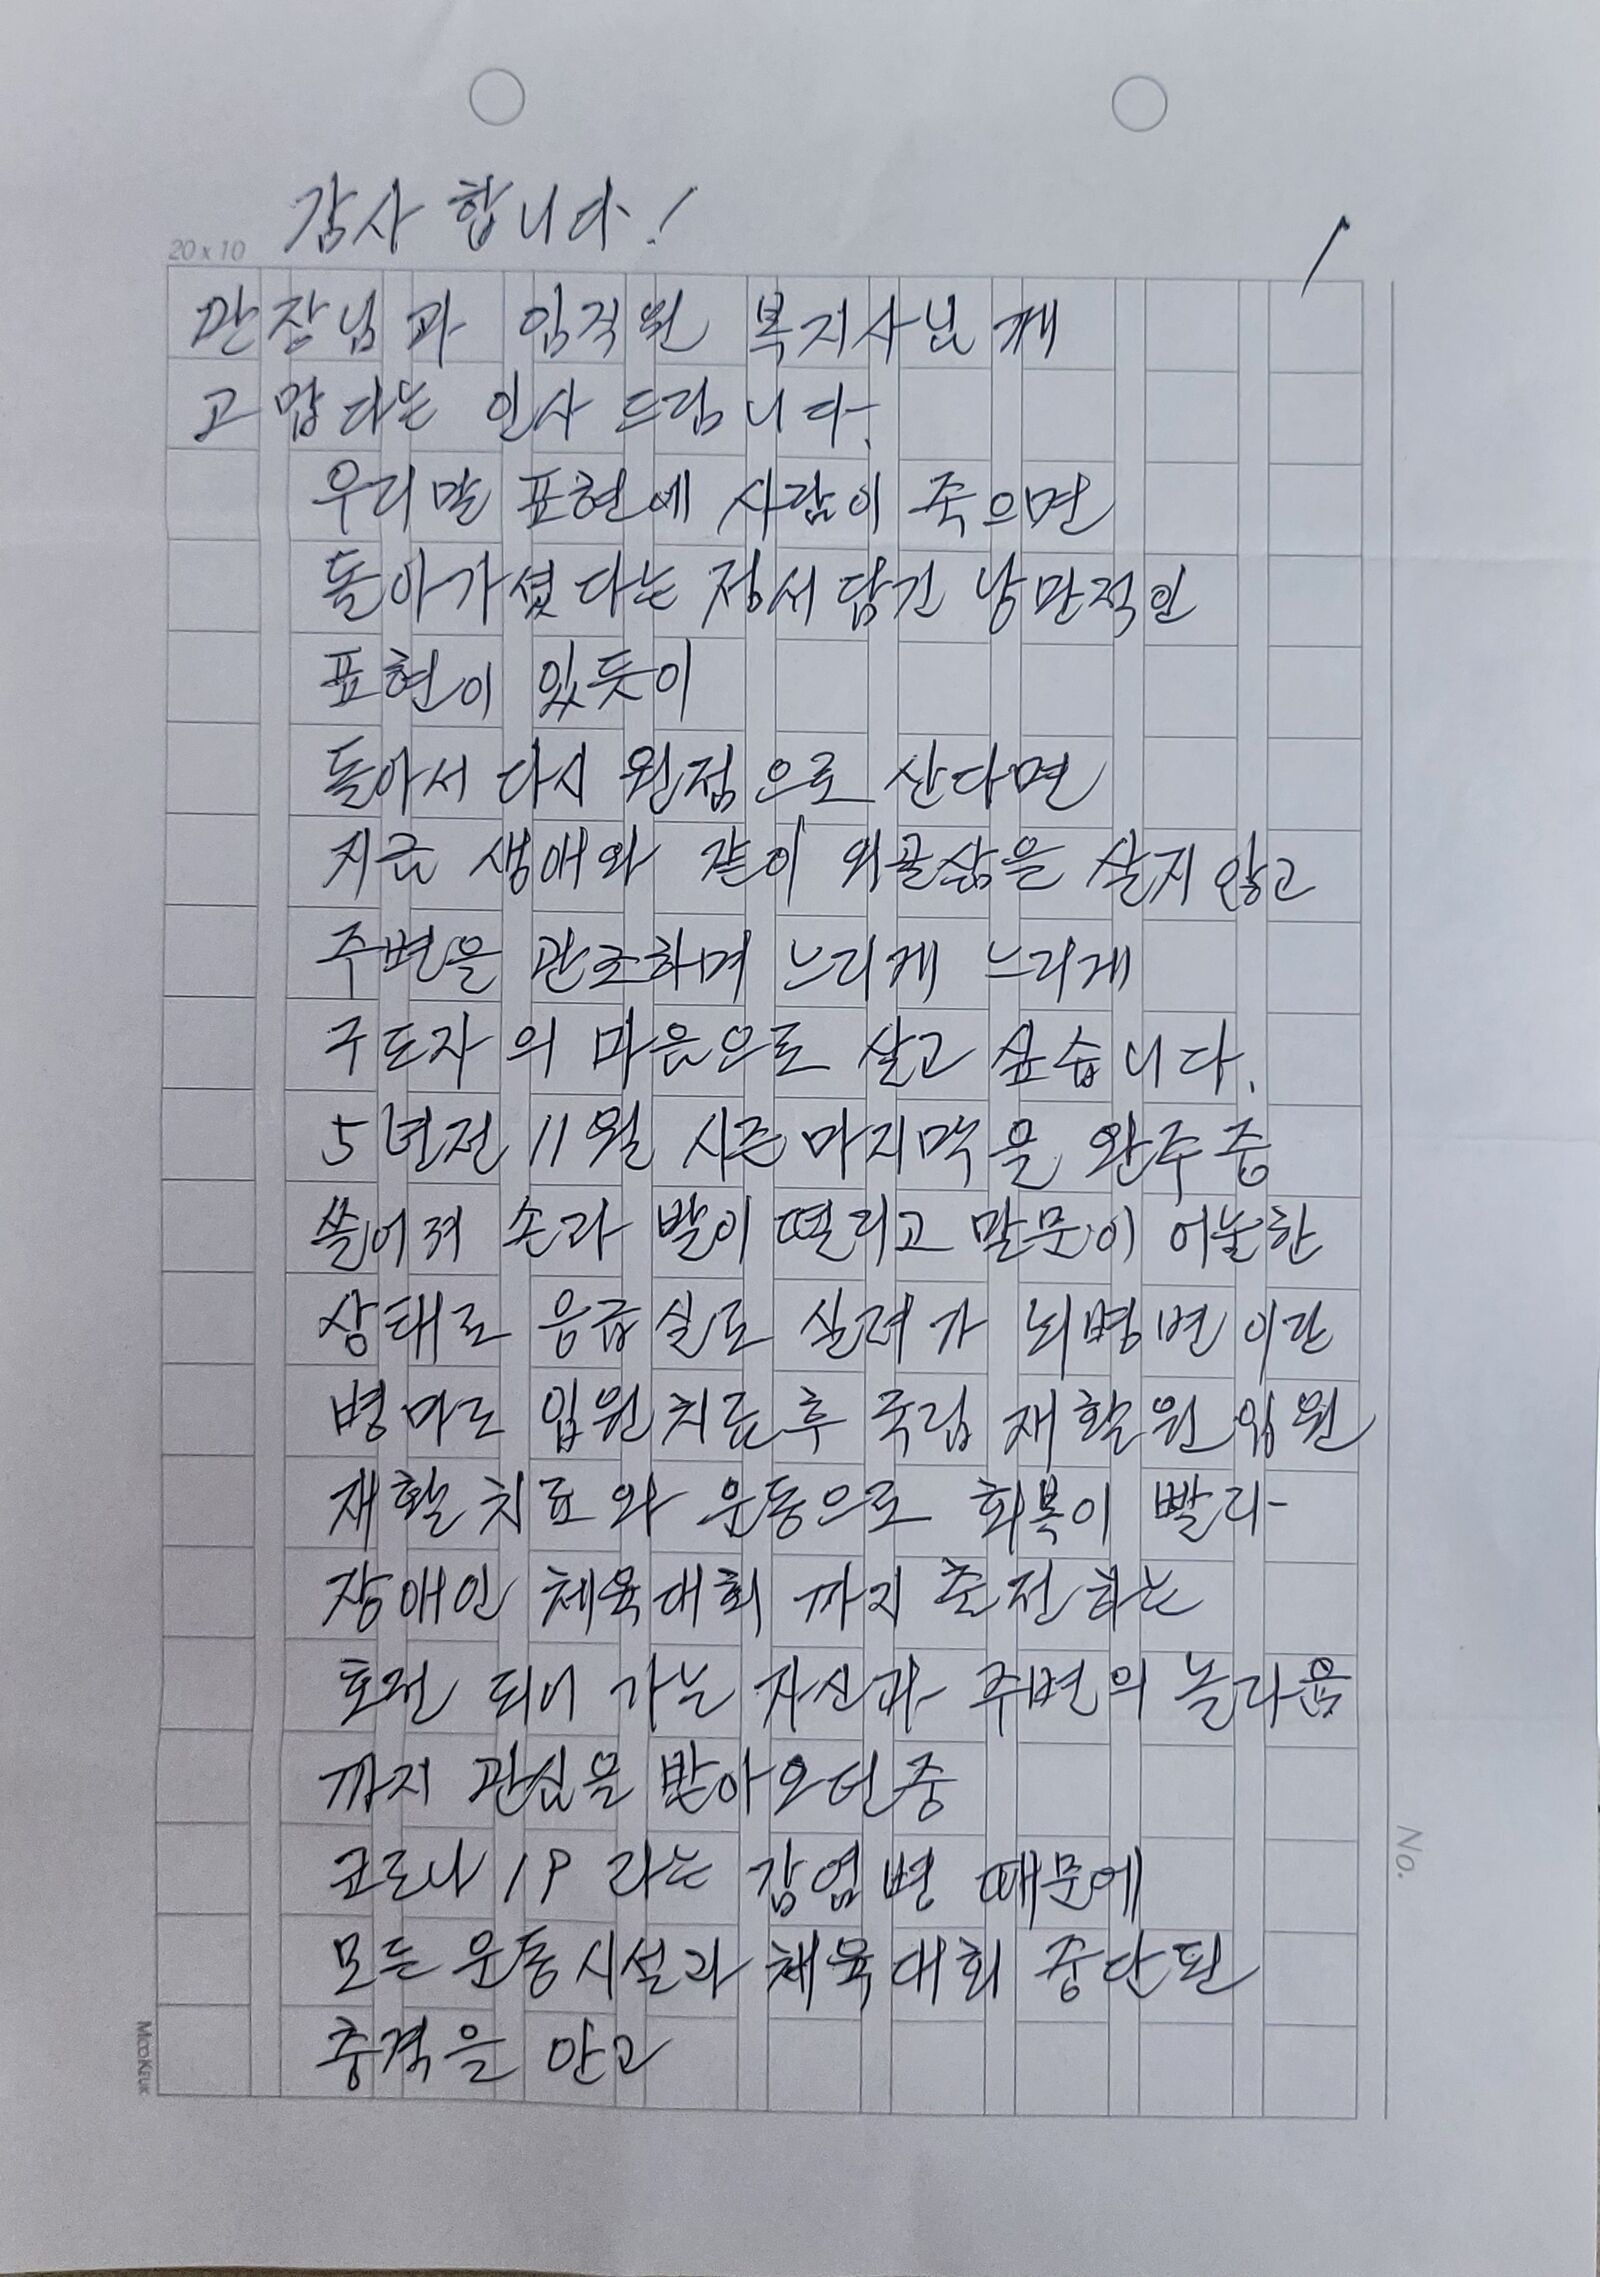 감사 합니다!
1
20 x 10
관장님과 임직원 복지사님께
고맙다는 인사 드립니다.
우리말 표현에 사람이 죽으면
돌아가셨다는 정서 담긴 낭만적인
표현이 있듯이
돌아서 다시 원점으로 산다면
지금 생애와 같이 외골삶을 살지 않고
주변을 관조하며 느리게 느리게
구도자의 마음으로 살고 싶습니다.
5년전 11월 시즌 마지막을 완주중
쓸어져 손과 발이 떨리고 말문이 어눌한
상태로 응급실로 실려가 뇌병변이란
병마로 입원치료후 국립 재활원 입원
재활치료와 운동으로 회복이 빨라
장애인 체육대회 까지 출전하는
호전 되어 가는 자신과 주변의 놀라움
까지 관심을 받아오던중
코로나 19 라는 감염병 때문에
모든 운동시설과 체육대회 중단된
충격을 안고
No.
MOOKEUK